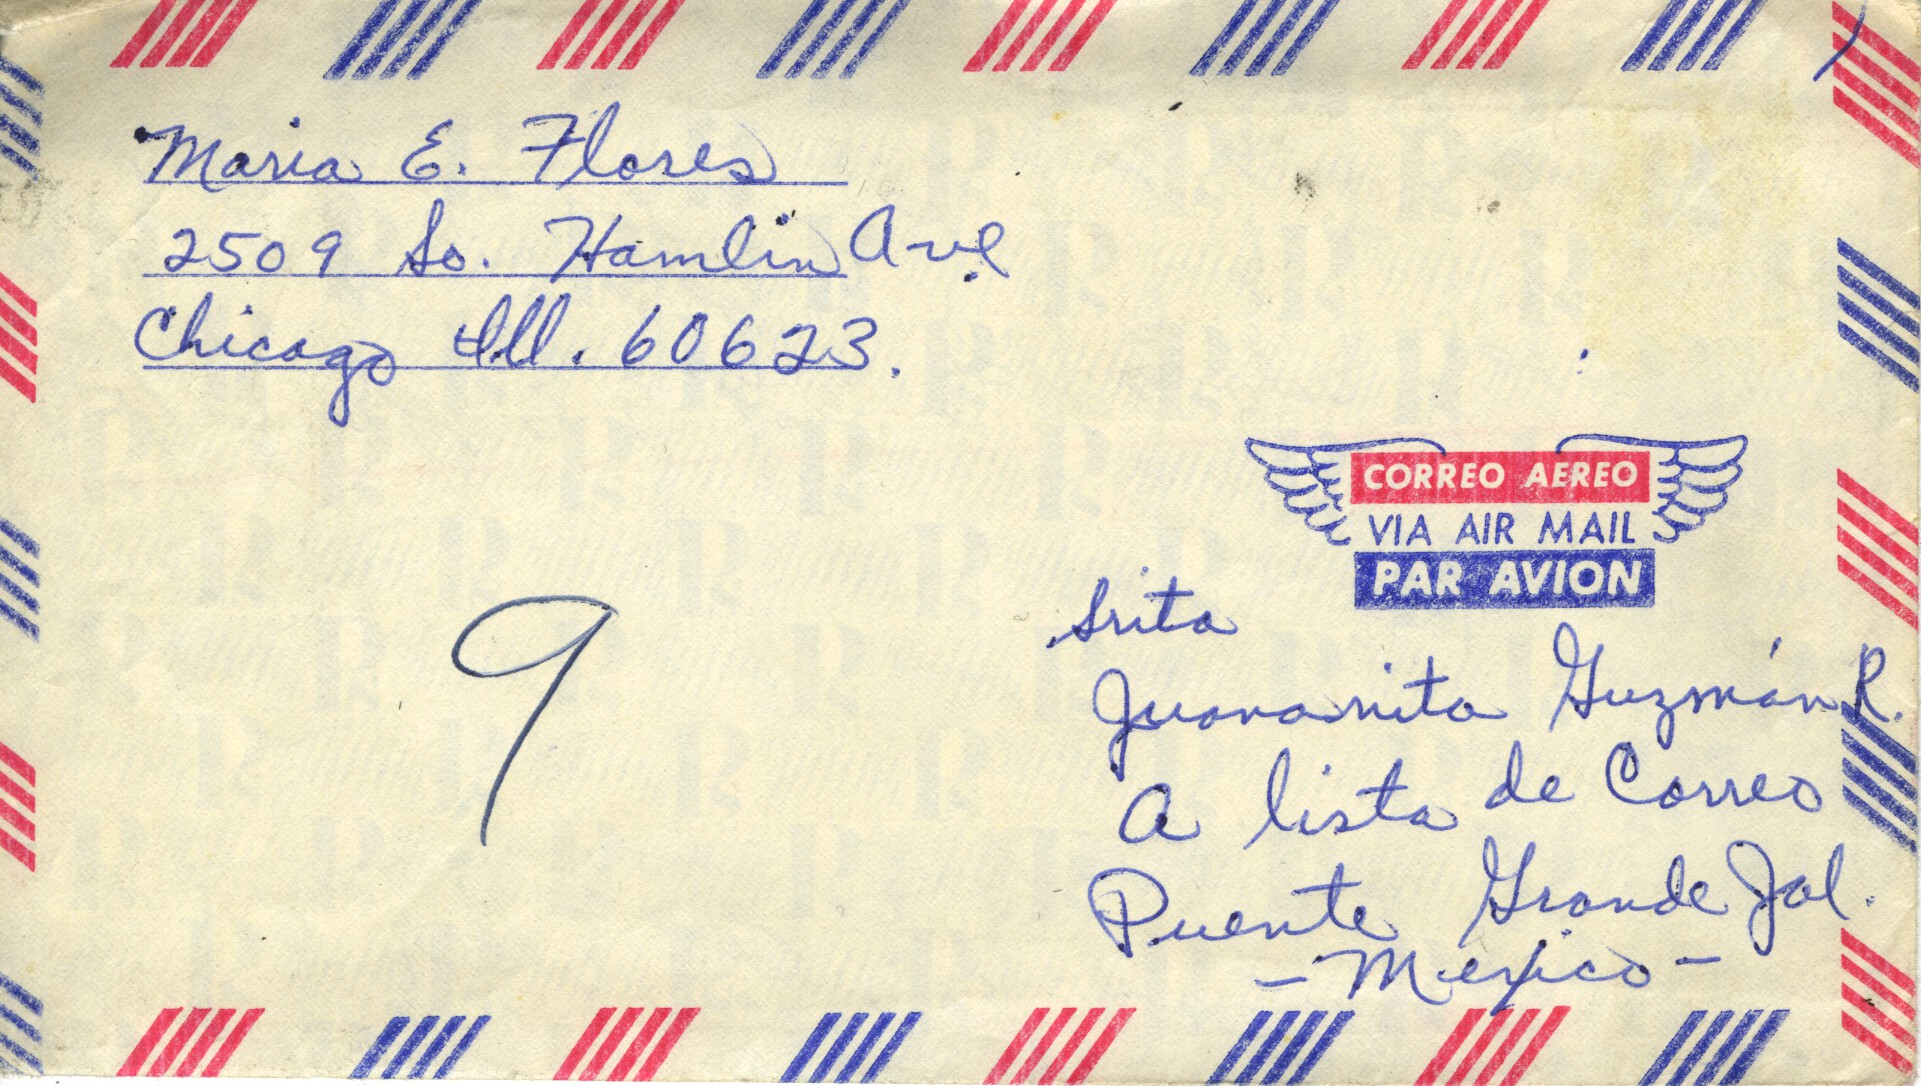 Maria E. Flores
2509 So. Hamlin Ave.
Chicago Ill. 60623.
CORREO AEREO
VIA AIR MAIL
PAR AVION
9
Srita
Juananita Guzmán R.
A lista de Correo
Puente Grande Jal.
- Mexico -